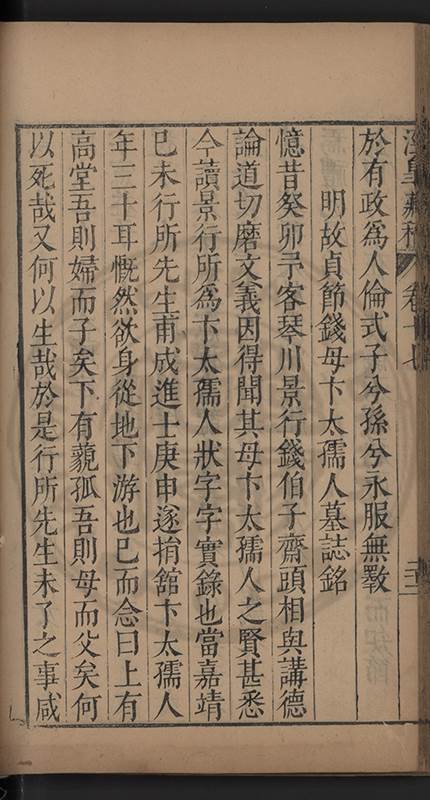 涇皋藏稿 卷十七
於有政爲人倫式子兮孫兮永服無斁
明故貞節錢母卞太孺人墓誌銘
憶昔癸卯予客琴川景行錢伯子齋頭相與講德
論道切磨文義因得聞其母卞太孺人之賢甚悉
今讀景行所爲卞太孺人狀字字實錄也當嘉靖
巳未行所先生甫成進士庚申遂捐舘卞太孺人
年三十耳慨然欲身從地下游也巳而念曰上有
高堂吾則婦而子矣下有藐孤吾則母而父矣何
以死哉又何以生哉於是行所先生未了之事咸